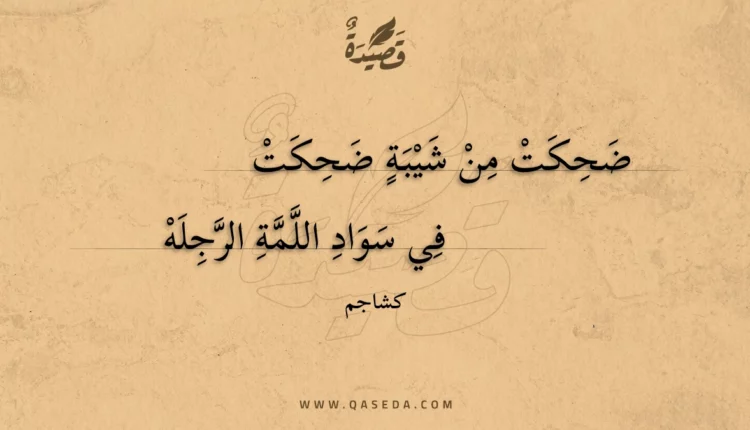 قَصِيْدَةٌ
ضَحِكَتْ مِنْ شَيْبَةٍ ضَحِكَتْ
فِي سَوَادِ اللَّمَّةِ الرَّجِلَهْ
كشاجم
WWW.QASEDA.COM